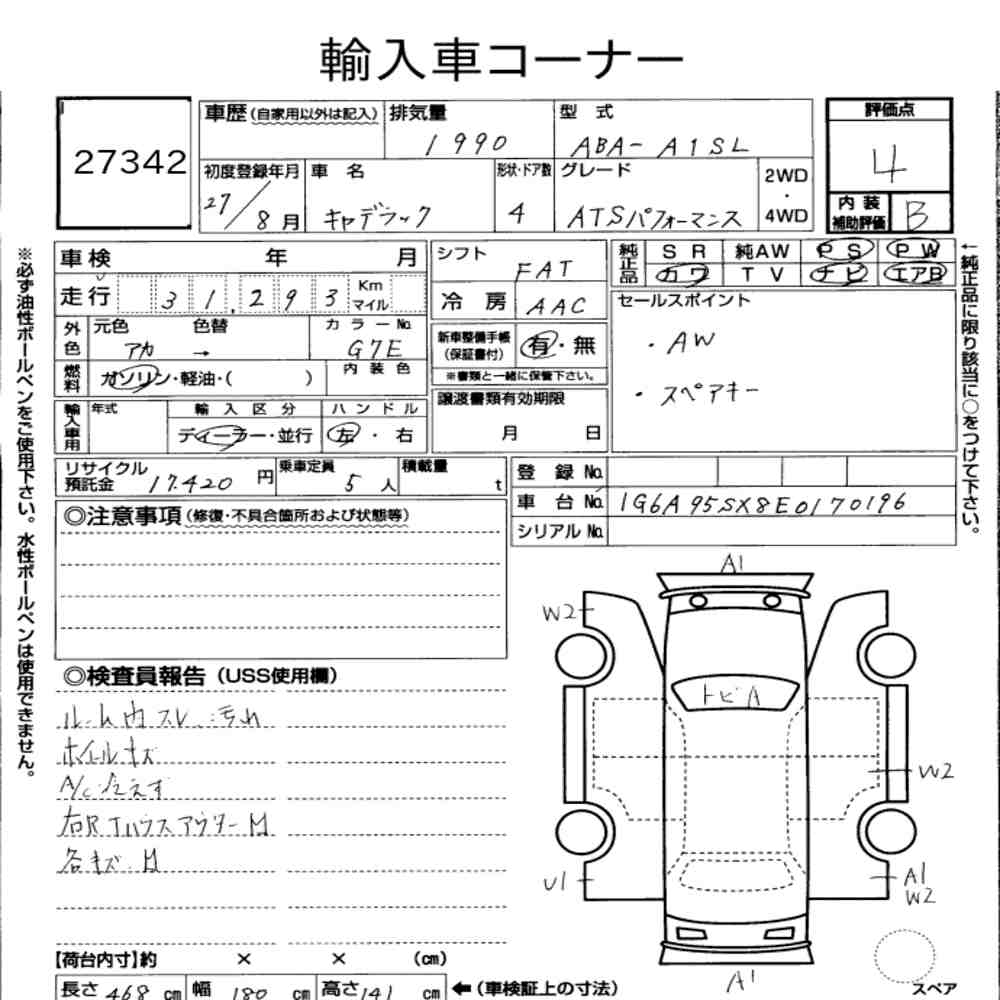 輸入車コーナー
27342
車歴(自家用以外は記入) 排気量 1990 型式 ABA-A1SL
初度登録年月 27/8月 車名 キャデラック 形状・ドア数 4 グレード ATSパフォーマンス 2WD・4WD
評価点 4
内装補助評価 B
※必ず油性ボールペンをご使用下さい。水性ボールペンは使用できません。
車検 年 月
走行 31,293 Km マイル
外色 元色 アカ 色替 → カラーNo. G7E
燃料 ガソリン・軽油・( ) 内装色
輸入車用 年式 輸入区分 ディーラー・並行 ハンドル 左・右
シフト FAT
冷房 AAC
新車整備手帳(保証書付) 有・無
※書類と一緒に保管下さい。
譲渡書類有効期限
月 日
純正品 SR 純AW PS PW
カワ TV ナビ エアB
セールスポイント
・AW
・スペアキー
←純正品に限り該当に○をつけて下さい。
リサイクル預託金 17.420円 乗車定員 5人 積載量 t
登録No.
車台No. 1G6A95SX8E0170196
シリアルNo.
◎注意事項(修復・不具合箇所および状態等)
◎検査員報告(USS使用欄)
ルーム内スレ.汚れ
ホイールキズ
A/C冷えず
右Rタハウスアウター凹
各キズ.凹
A1
W2
トビA
W2
U1
A1
W2
A1
スペア
【荷台内寸】約 × × (cm)
長さ 468 cm 幅 180 cm 高さ 141 cm ←(車検証上の寸法)